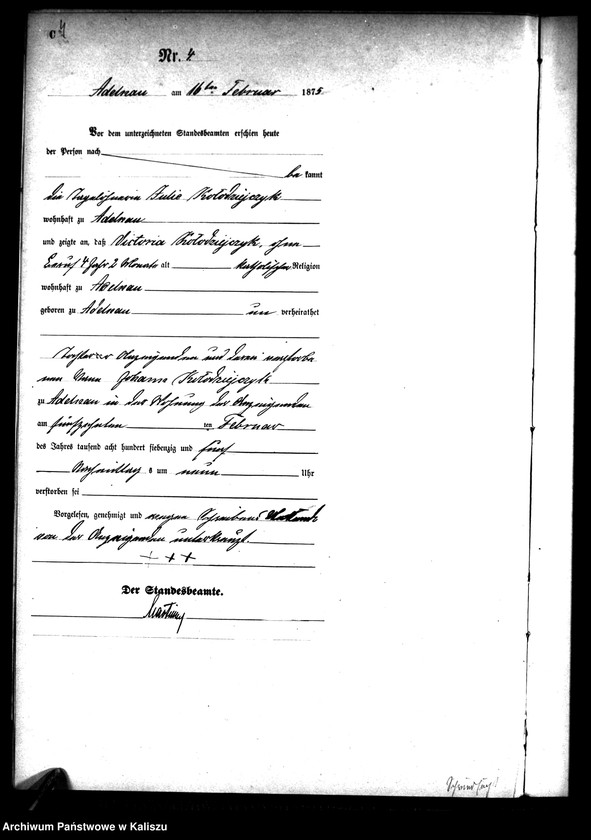 C 4
Nr. 4
Adelnau am 16ten Februar 1875
Vor dem unterzeichneten Standesbeamten erschien heute
der Person nach
be kannt
die Tagelöhnerin Julie Kołodziejczyk
wohnhaft zu Adelnau
und zeigte an, daß Victoria Kołodziejczyk, ohne
Beruf 4 Jahr 2 Monate alt katholischer Religion
wohnhaft zu Adelnau
geboren zu Adelnau un verheirathet
Tochter der Anzeigenden und deren verstorbe
nen Johann Kołodziejczyk
zu Adelnau in der Wohnung der Anzeigenden
am fünfzehnten ten Februar
des Jahres tausend acht hundert siebenzig und fünf
Nachmittag s um neun Uhr
verstorben sei
Vorgelesen, genehmigt und wegen Schreibens
von der Anzeigenden unterkreuzt.
+ + +
Der Standesbeamte.
Archiwum Państwowe w Kaliszu